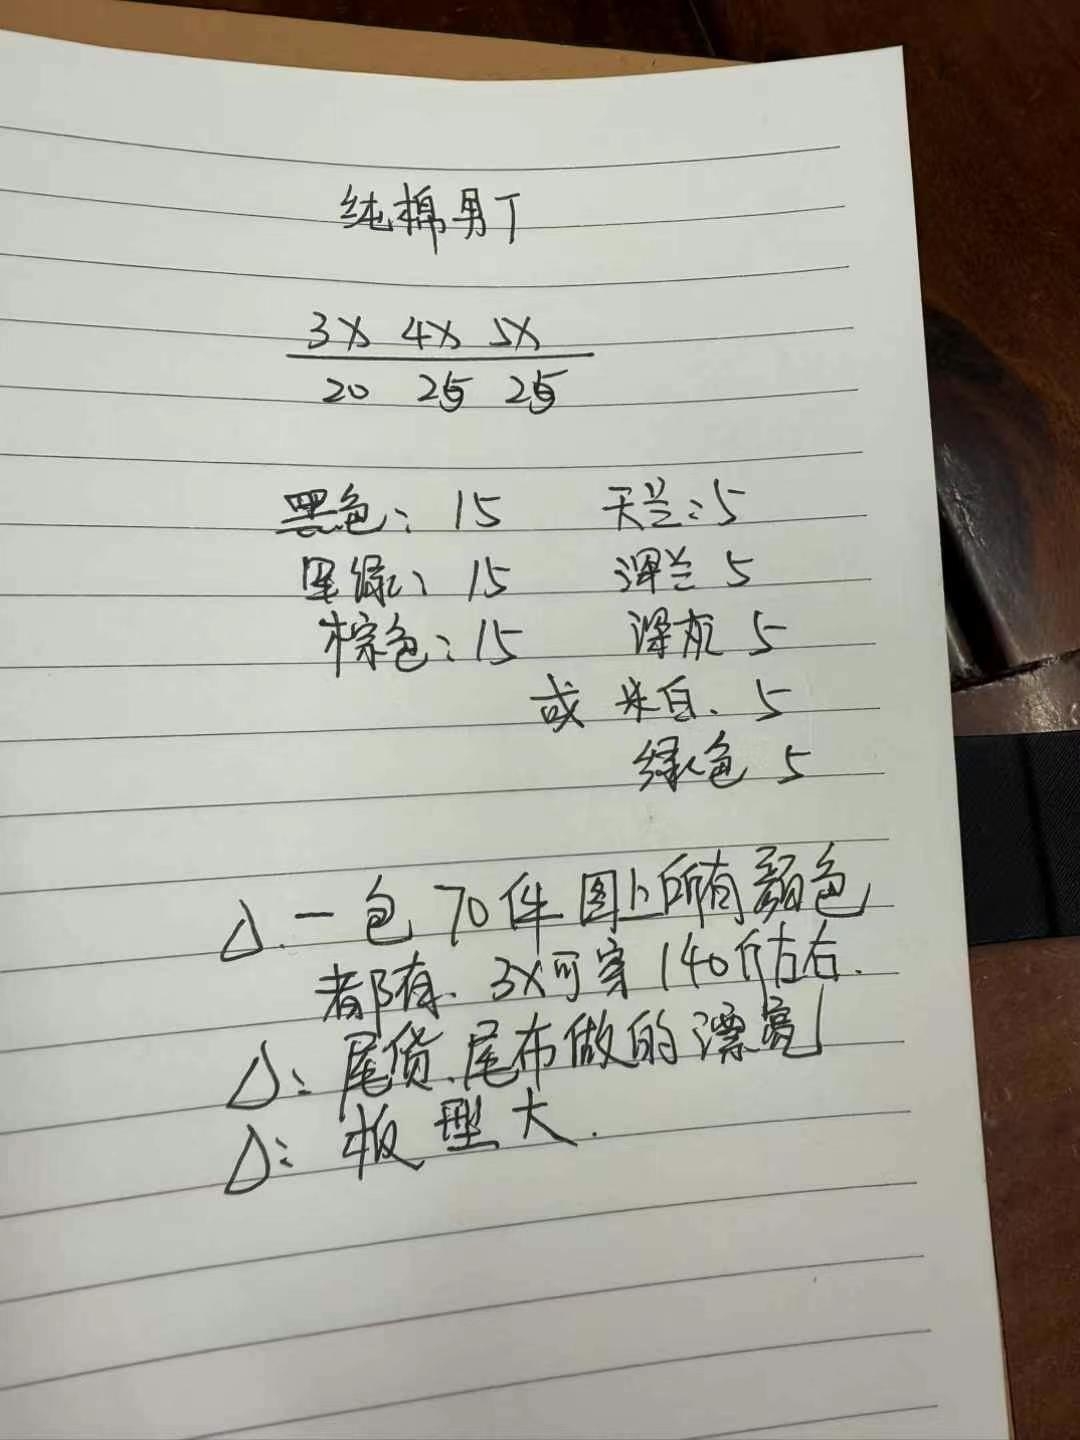 纯棉男T
3X 4X 5X
20 25 25
黑色: 15 天兰: 5
墨绿: 15 深兰 5
棕色: 15 深灰 5
或 米白、5
绿色 5
△. 一包70件图上所有颜色
都有. 3X可穿140斤左右.
△: 尾货、尾布做的漂亮
△: 板型大.